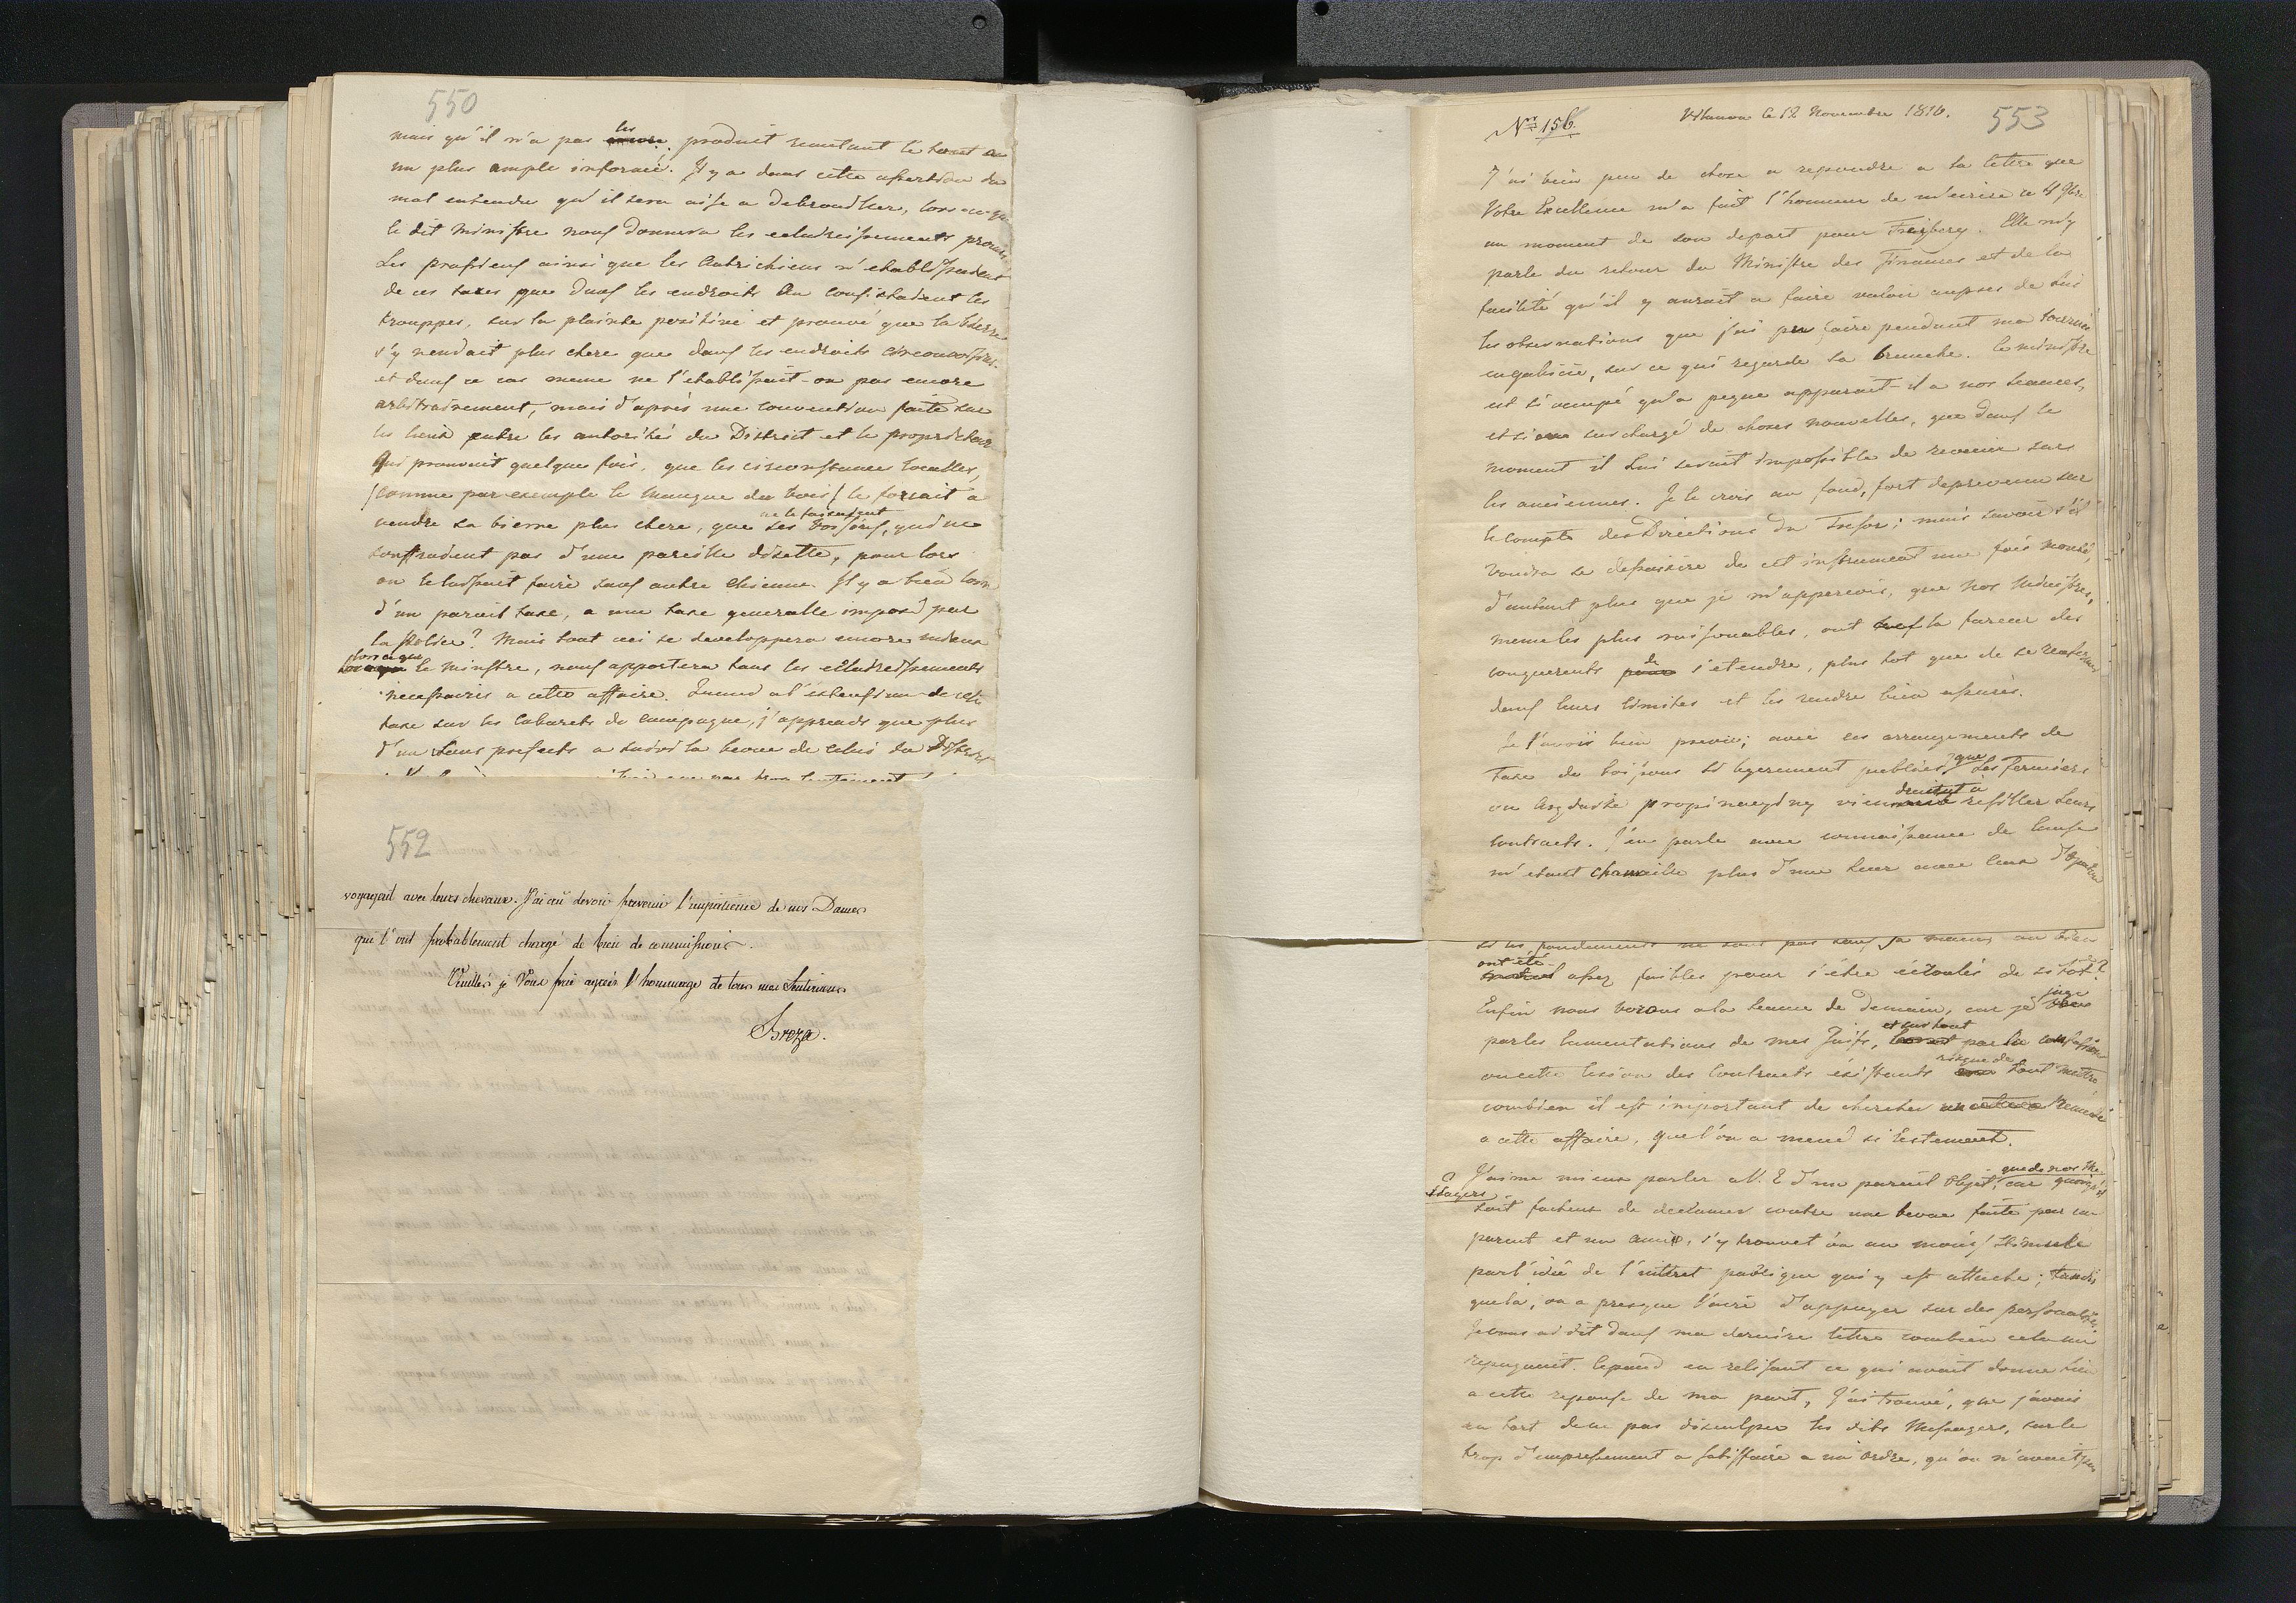 550
mais qu'il n'a pas les produit remettant le tout a
un plus ample informé. Il y a dans cette assertion du
mal entendu qu'il sera aisé a debrouiller, lorsque
le dit Ministre nous donnera les eclaircissements promis
Les prussiens ainsi que les Autrichiens n'etablissaient
de ces taxes que dans les endroits ou consistaient les
trouppes, sur la plainte positive et prouvé que la bierre
s'y vendait plus chere que dans les endroits circonvoisins.
et dans ce cas meme ne l'etablissait-on pas encore
arbitrairement, mais d'après une convention faite sur
les lieux entre les autorités du District et le proprietaire
Qui prouvait quelque fois, que les circonstances locales,
/comme par exemple le manque du bois/ le forsait a
vendre sa bierre plus chere, que ses voisins, qui ne
ne le faisaient
souffraient pas d'une pareille disette, pour lors
on le laissait faire sans autre chicane. Il y a bien loin
d'un pareil taxe, a une taxe generalle imposé par
la police? Mais tout ceci se developpera encore mieux
lorsque le ministre, nous apportera tous les eclaircissements
necessaires a cette affaire. Quand a l'extension de cette
taxe sur les Cabarets de Campagne, j'apprends que plus
d'un Sous prefects a suivi la bevue de celui du District
552
voyagent avec leurs chevaux. J'ai cru devoir prevenir l'impatience de nos Dames
qui l'ont probablement chargé de bien de commissions.
Veuilliés je Vous prie agréer l'hommage de tous mes Sentiments
Broza.
Nro 156.
Vilanow le 12 Novembre 1816.
553
J'ai bien peu de chose a repondre a la lettre que
Votre Excellence m'a fait l'honneur de m'ecrire ce 11 9bre
au moment de son depart pour Freyberg. Elle m'y
parle du retour du Ministre des Finances et de la
facilité qu'il y aurait a faire valoir aupres de lui
les observations que j'ai pu faire pendant ma tournée
en galicie, sur ce qui regarde sa branche. Le ministre
est si occupé qu'a peine apparait-il a nos seances,
et si surchargé de choses nouvelles, que dans le
moment il lui serait impossible de revenir sur
les anciennes. Je le crois au fond, fort deprevenu sur
le compte des Directions du Tresor; mais savoir s'il
voudra se dessaisire de cet instrument une fois monté,
d'autant plus que je m'apperçois, que nos Ministres,
meme les plus raisonables, ont la fureur des
conquerents de s'etendre, plus tot que de se renfermer
dans leurs limites et les rendre bien assurés.
Je l'avois bien prevu; avec ces arrangements de
taxe de boissons si legerement publiés, que les fermiers
ou Arędarze propinacyiny viendraient à resilier leurs
contracts. J'en parle avec connaissance de cause
m'etant chamaillé plus d'une heur avec ceux d'Opatow
si les fondements ne sont pas dans sa maison, ou bien
ont été assez faibles pour s'être écroulés de sitot?
Enfin nous verrons a la seance de demain, car je juge
par les lamentations de mes Juifs, et surtout par la confusion
ou cette lesion des Contracts existants risque de tout mettre
combien il est important de chercher remede
a cette affaire, que l'on a mené si lestement.
J'aime mieux parler a V. E d'un pareil objet, que de nos Mes-
sagers car quoiqu'il
soit facheux de declamer contre une bevue faite par un
parent et un ami, s'y trouvet on au moins stimulé
par l'idée de l'interet publique qui y est attaché; tandis
que la, on a presque l'aire d'appuyer sur des personalités.
Je vous ai dit dans ma derniere lettre combien cela me
repugnait. Cepend en relisant ce qui avait donné lieu
a cette reponse de ma part, j'ai trouvé, que j'avais
eu tort de ne pas disculper les dits Messagers, sur le
trop d'empressement a satisfaire a un ordre, qu'on n'avait pas